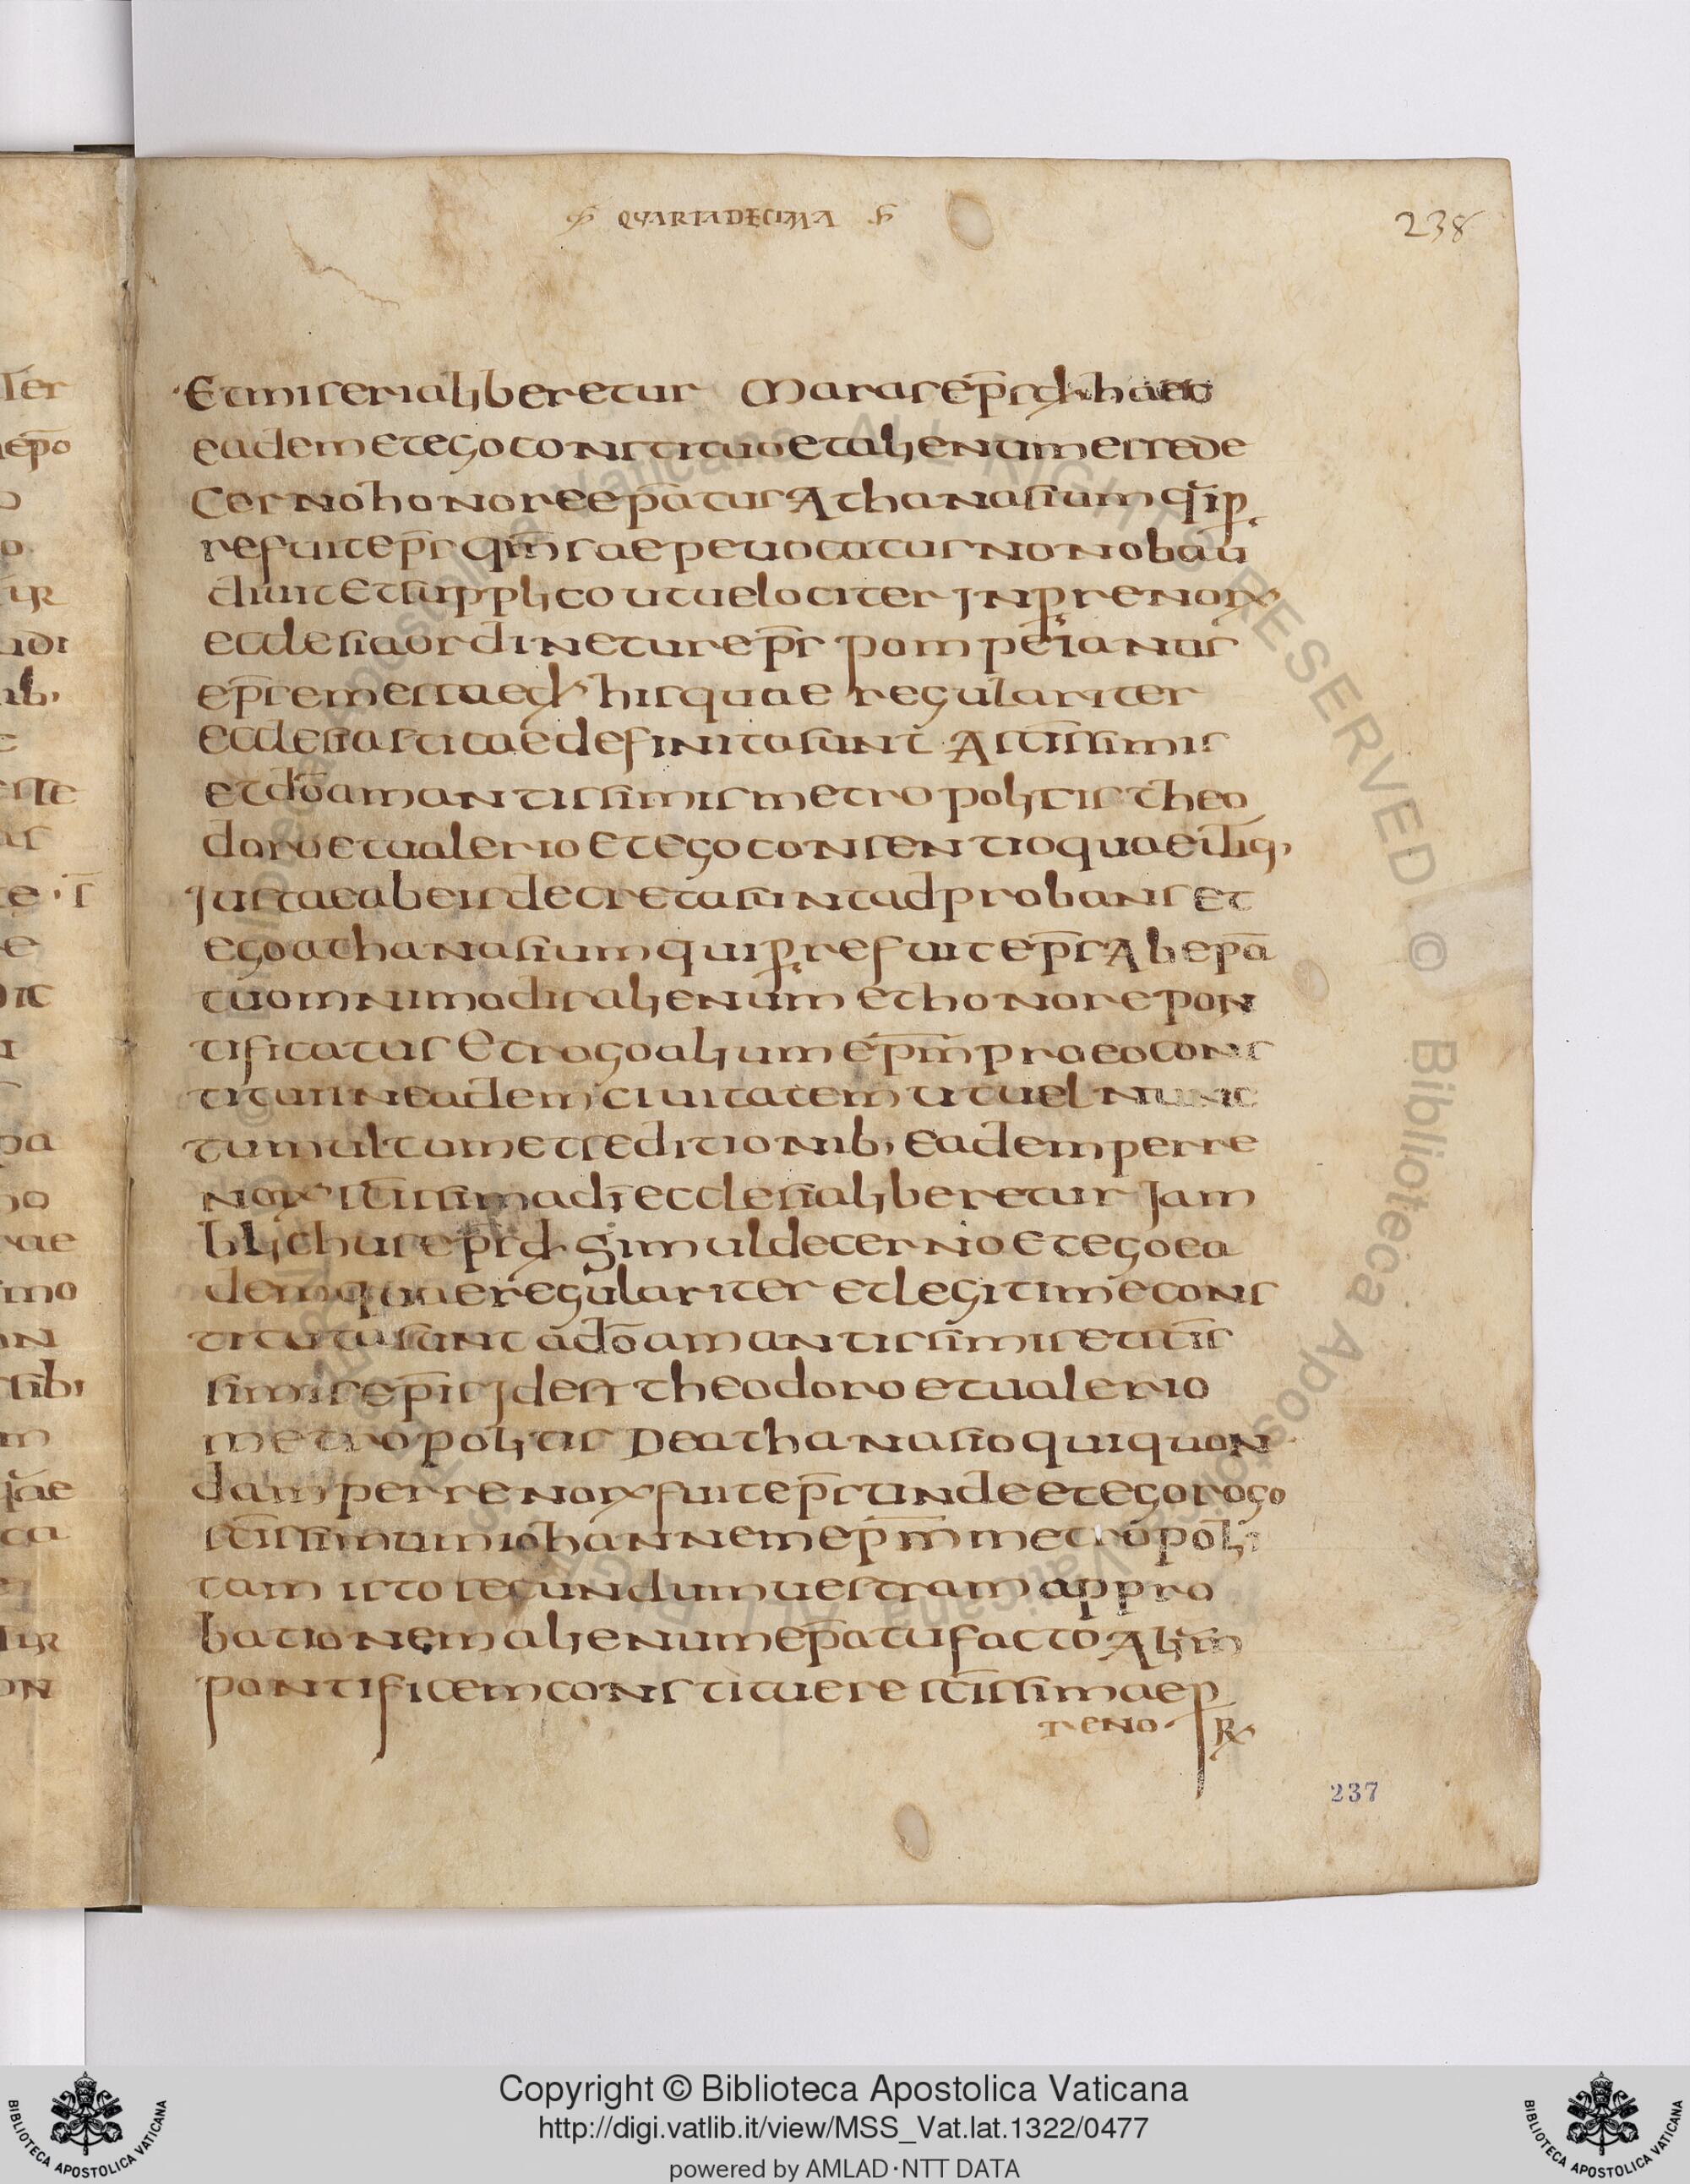 QUARTADECIMA
238
Et miseria liberetur Maras ep̄s dx haec
eadem et ego constituo et alienum esse de
cerno honore ep̄atus Athanasium qui p
refuit ep̄s qm̄ saepe uocatus non obau
diuit et supplico ut uelociter in prenorx
ecclesia ordinetur ep̄s pompeianus
ep̄s emessae dx his quae regulariter
ecclesiasticae definita sunt A sc̄issimis
et dō amantissimis metropolitis theo
doro et ualerio Et ego consentio quae iliq,
iustae ab eis decreta sunt adprobans et
ego athanasium qui prefuit ep̄s Ab ep̄a
tu omnimodis alienum et honore pon
tificatus Et rogo alium ep̄m pro eo cons
titui in eadem ciuitatem ut uel nunc
tumultum et seditionib, eadem perre
norx sc̄issima dī ecclesia liberetur Jam
blichus ep̄s dx Simul decerno Et ego ea
dem quae regulariter et legitime cons
tituta sunt a dō amantissimis et sc̄is
simis ep̄is Id est theodoro et ualerio
metropolitis De athanasio qui quon
dam perrenorx fuit ep̄s unde et ego rogo
sc̄issimum iohannem ep̄m metropoli
tam isto secundum uestram appro
bationem alienum ep̄atu facto Aliūm
pontificem constituere sc̄issimae p
reno. Rx
237
Copyright © Biblioteca Apostolica Vaticana
http://digi.vatlib.it/view/MSS_Vat.lat.1322/0477
powered by AMLAD·NTT DATA
BIBLIOTECA APOSTOLICA VATICANA
BIBLIOTECA APOSTOLICA VATICANA